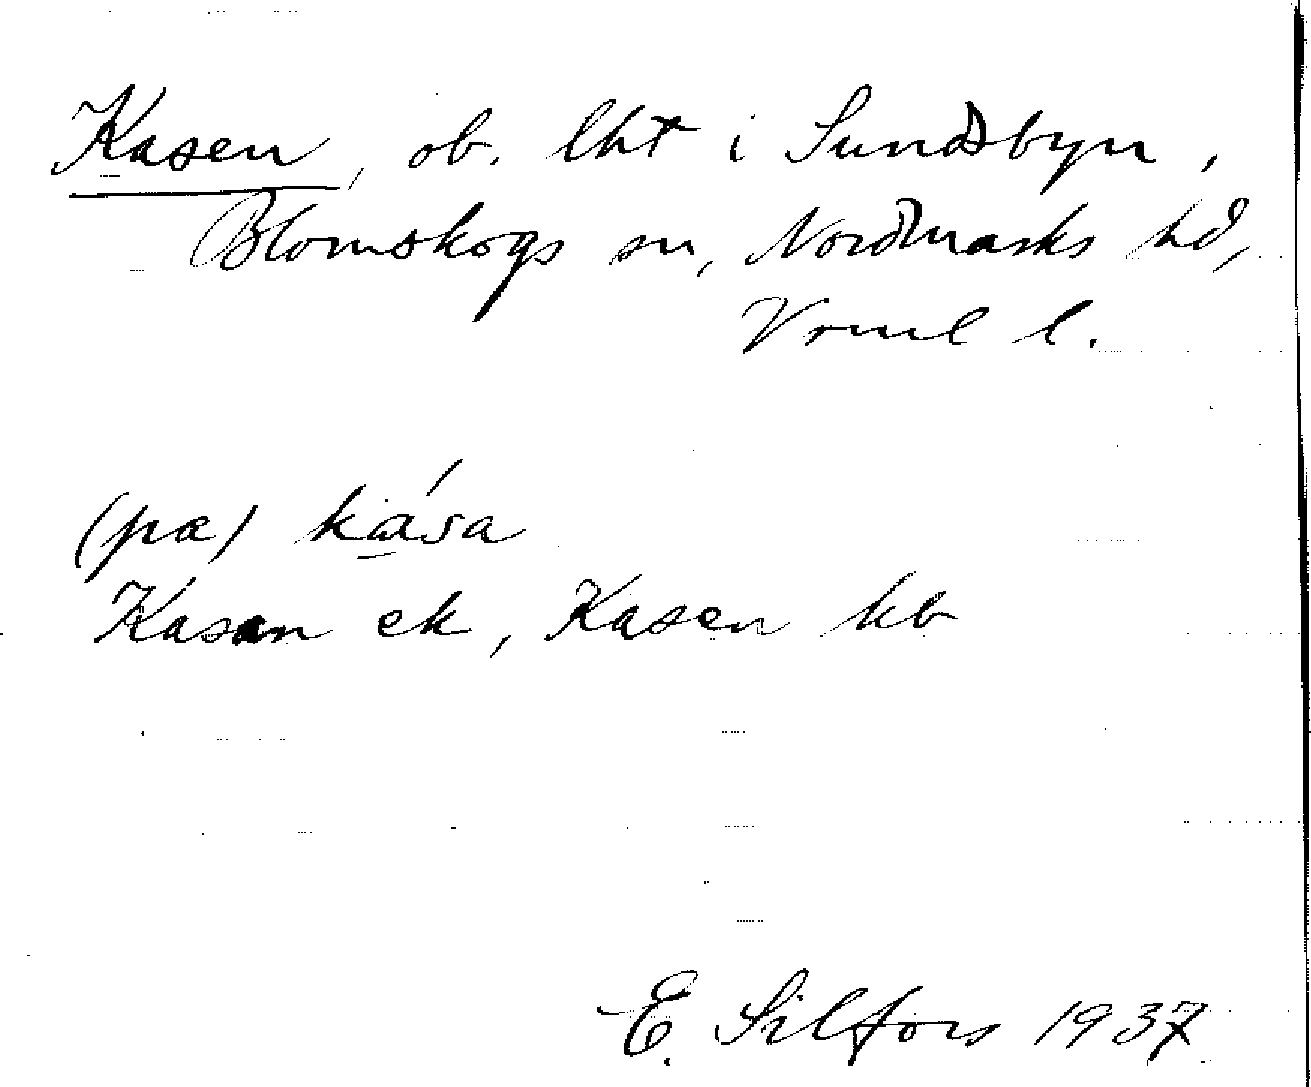 Kasen, ob. lht i Sundsbyn,
Blomskogs sn, Nordmarks hd,
Vrml l.
(pa) ká̱sa
Kasan ek, Kasen kb
E. Silfors 1937